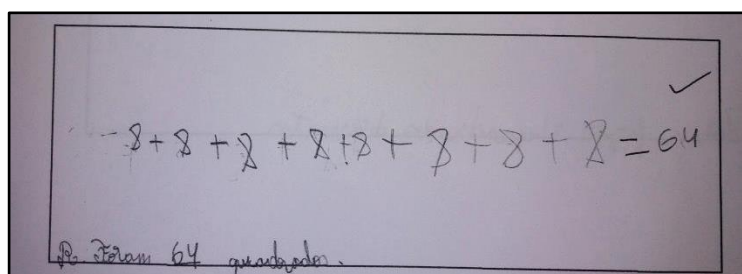 8+8+8+8+8+8+8+8=64
R. Foram 64 quadrados.